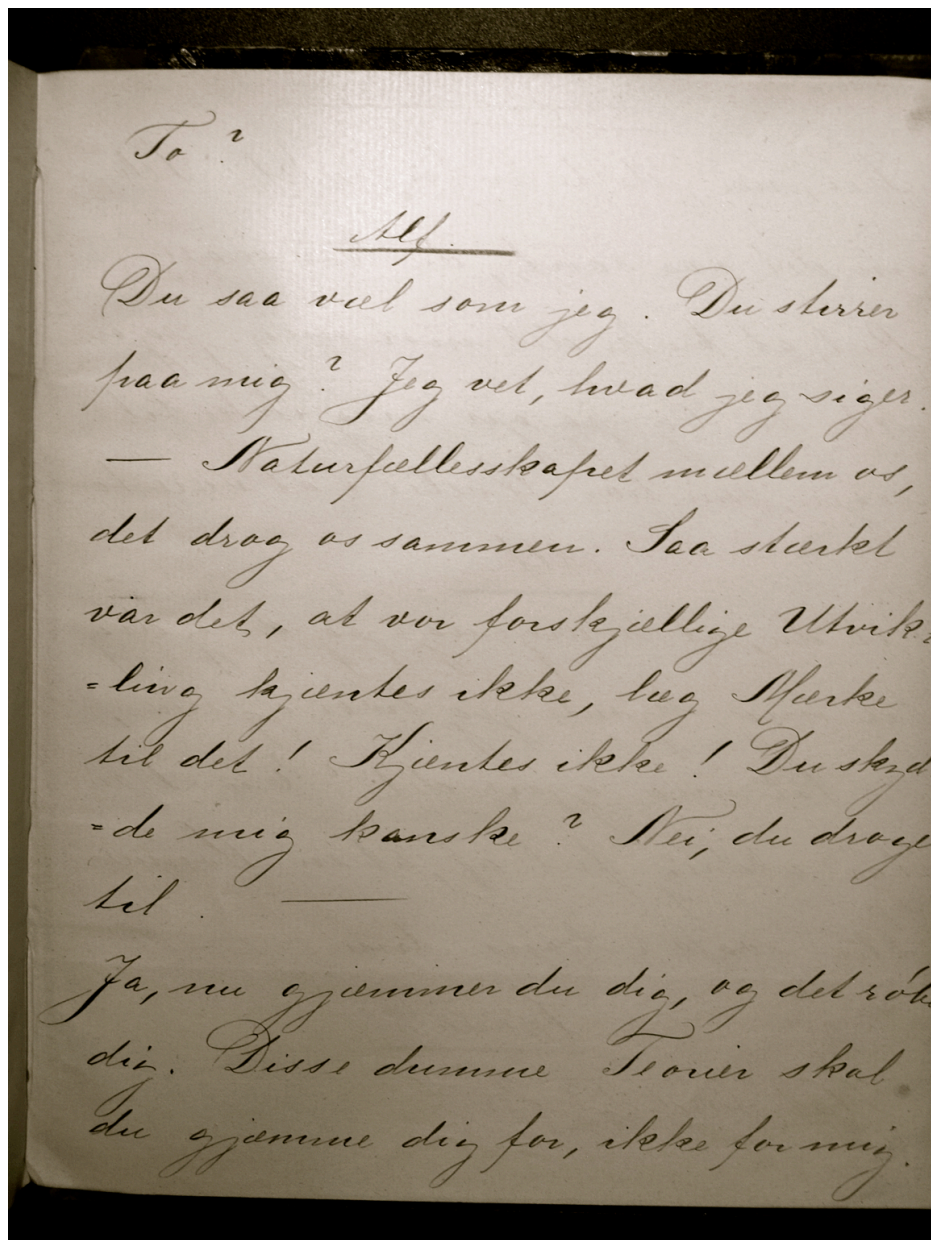 To ?
Alf.
Du saa væl som jeg. Du stirrer
paa mig ? Jeg vet, hvad jeg siger.
— Naturfællesskapet mællem os,
det drog os sammen. Saa stærkt
var det, at vor forskjællige Utvik-
=ling kjæntes ikke, læg Mærke
til det ! Kjæntes ikke ! Du skyd
=de mig kanske ? Nei, du droges
til. —
Ja, nu gjæmmer du dig, og det
dig. Disse dumme Teorier skal
du gjæmme dig for, ikke for mig.